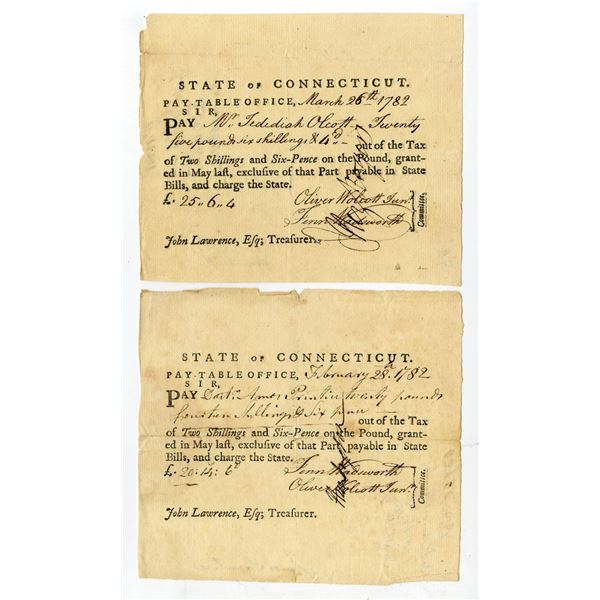 STATE OF CONNECTICUT.
PAY-TABLE OFFICE, March 26th 1782
SIR,
PAY Mr. Jedediah Olcott Twenty
five pounds six shillings & 4d - out of the Tax
of Two Shillings and Six-Pence on the Pound, grant-
ed in May laſt, excluſive of that Part payable in State
Bills, and charge the State.
£. 25 „ 6 „ 4
Oliver Wolcott Junr.
Fenn Wadsworth
Committee.
John Lawrence, Eſq; Treaſurer.
STATE OF CONNECTICUT.
PAY-TABLE OFFICE, February 28th 1782
SIR,
PAY Amos Prentice twenty pounds
fourteen shillings & Six pence out of the Tax
of Two Shillings and Six-Pence on the Pound, grant-
ed in May laſt, excluſive of that Part payable in State
Bills, and charge the State.
£. 20 : 14 : 6
Fenn Wadsworth
Oliver Wolcott Junr.
Committee.
John Lawrence, Eſq; Treaſurer.